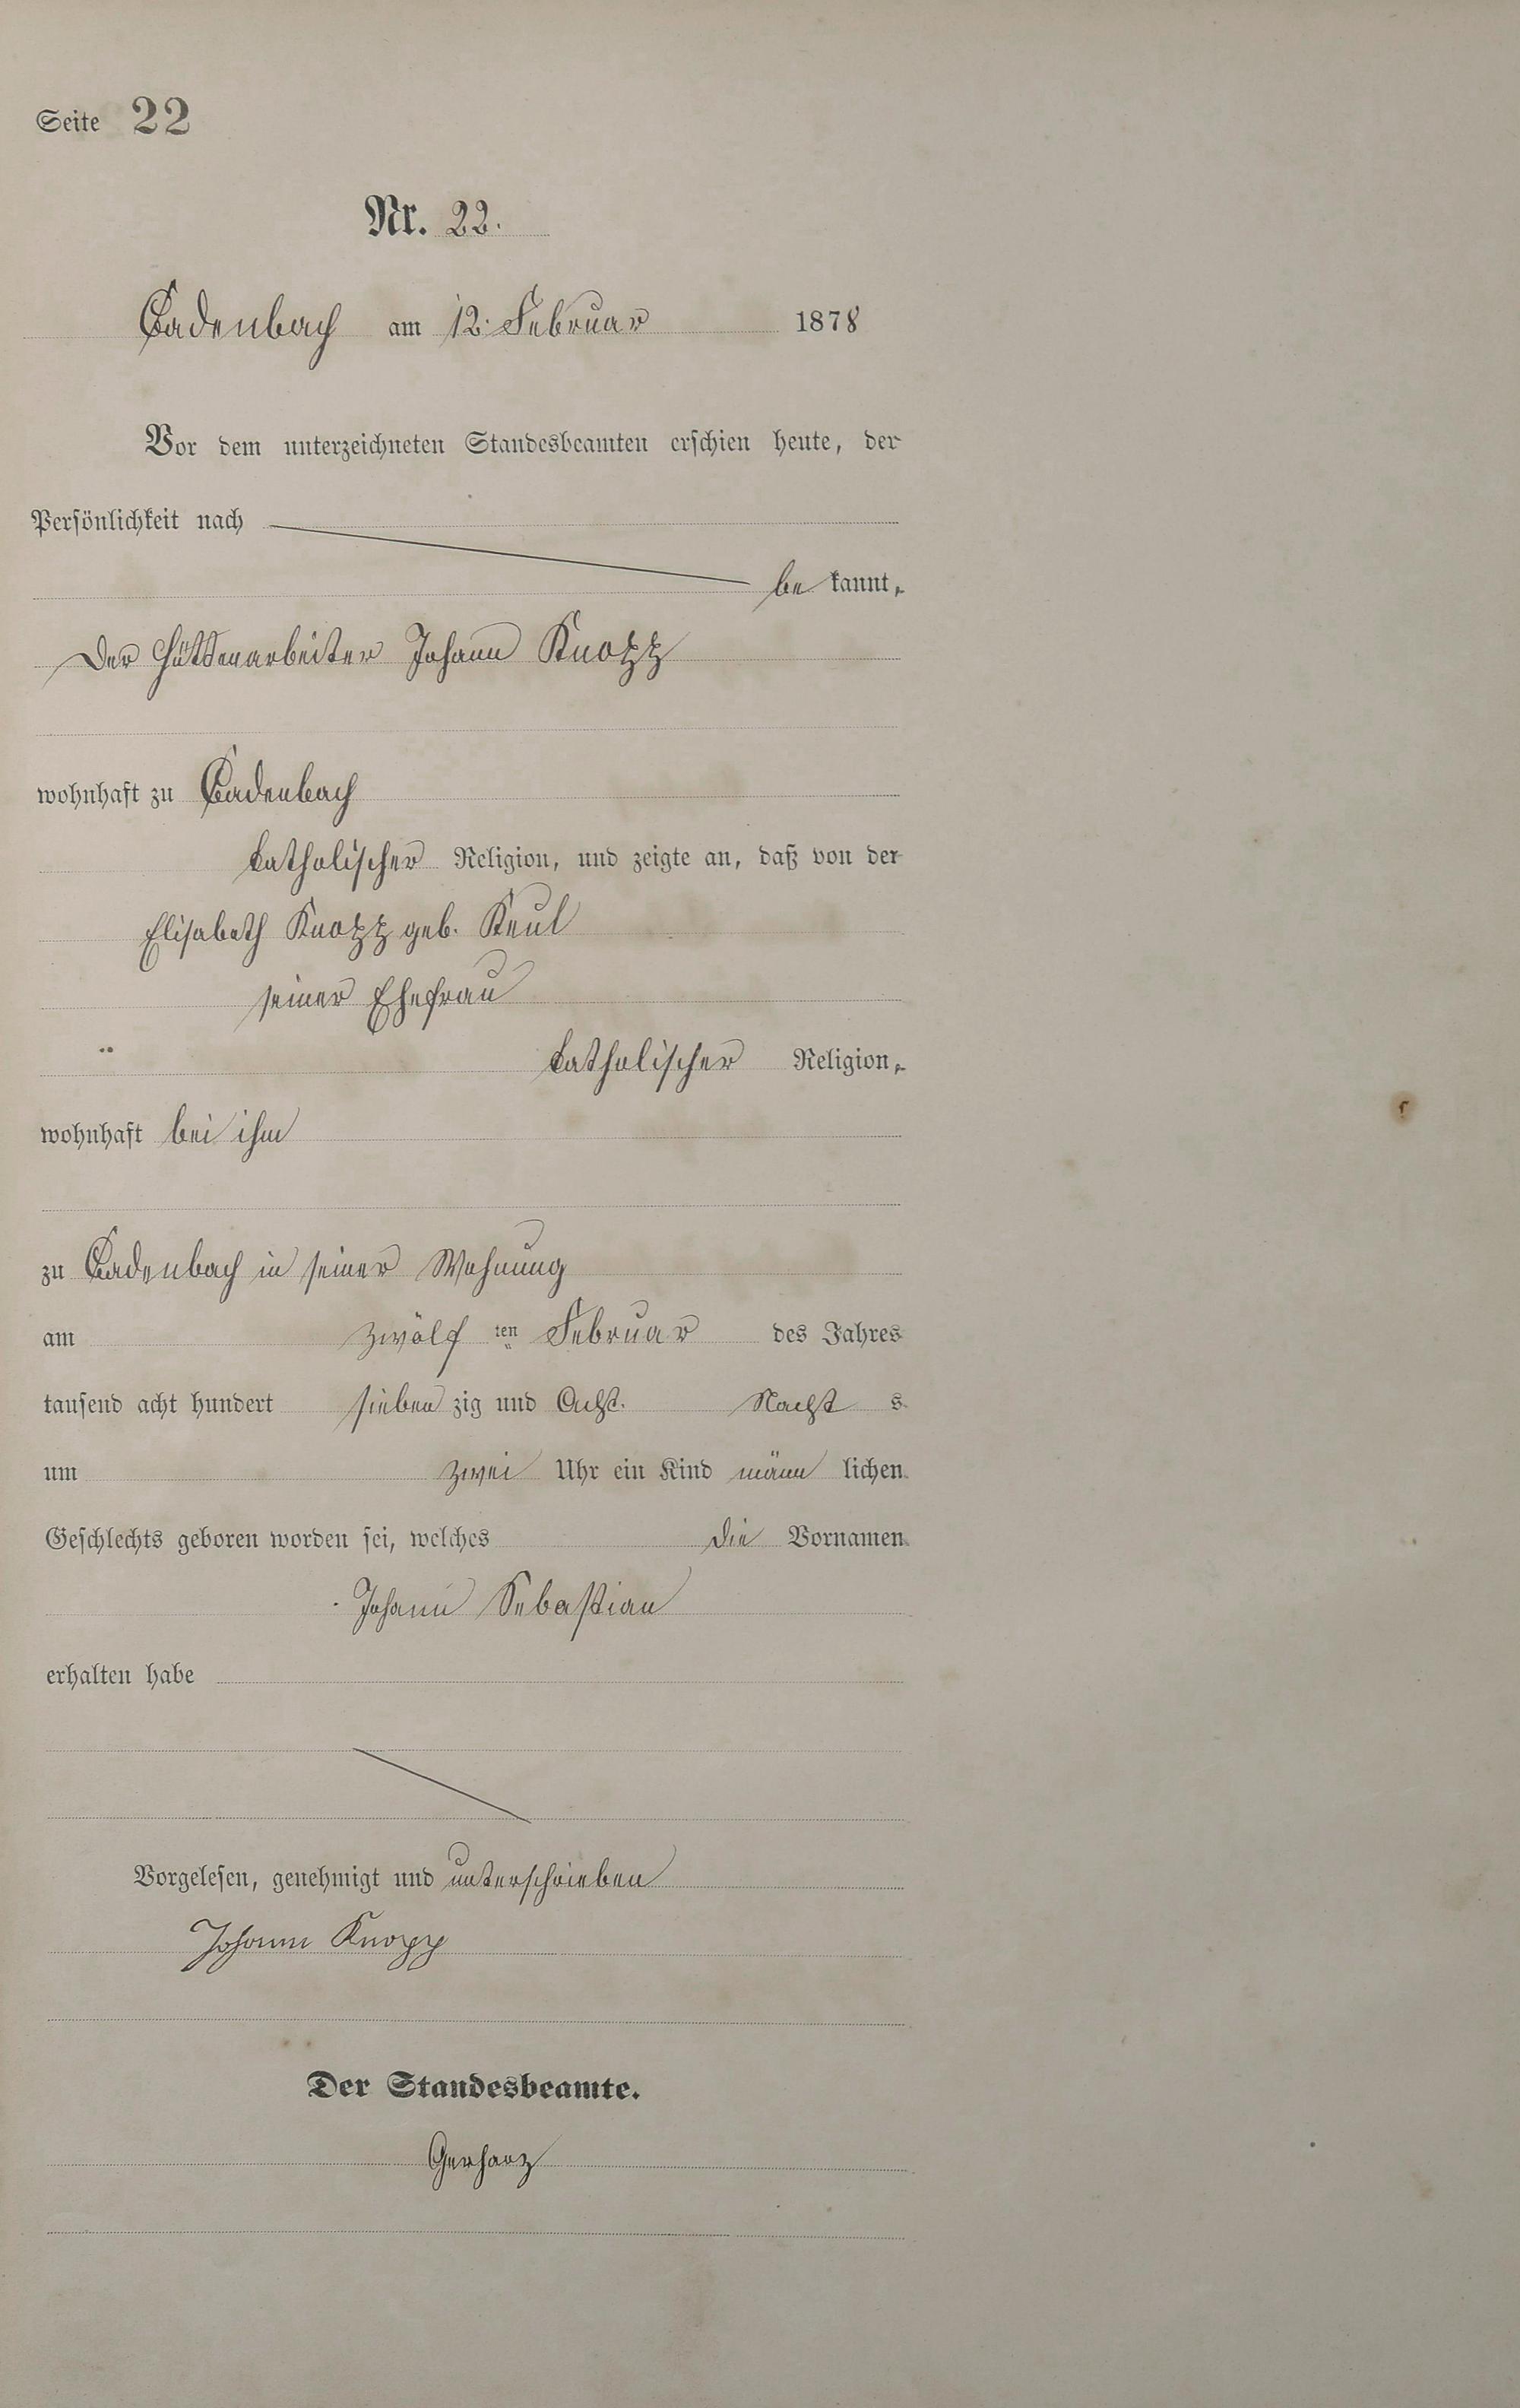 Seite 22
Nr. 22.
Cadenbach am 12. Februar 1878
Vor dem unterzeichneten Standesbeamten erschien heute, der
Persönlichkeit nach
be kannt,
Der Hüttenarbeiter Johann Knopp
wohnhaft zu Cadenbach
katholischer Religion, und zeigte an, daß von der
Elisabeth Knopp geb. Keul
seiner Ehefrau
katholischer Religion,
wohnhaft bei ihm
zu Cadenbach in seiner Wohnung
am zwölf ten Februar des Jahres
tausend acht hundert sieben zig und Acht. Nacht s
um zwei Uhr ein Kind männ lichen
Geschlechts geboren worden sei, welches die Vornamen
Johann Sebastian
erhalten habe
Vorgelesen, genehmigt und unterschrieben
Johann Knopp
Der Standesbeamte.
Gerharz